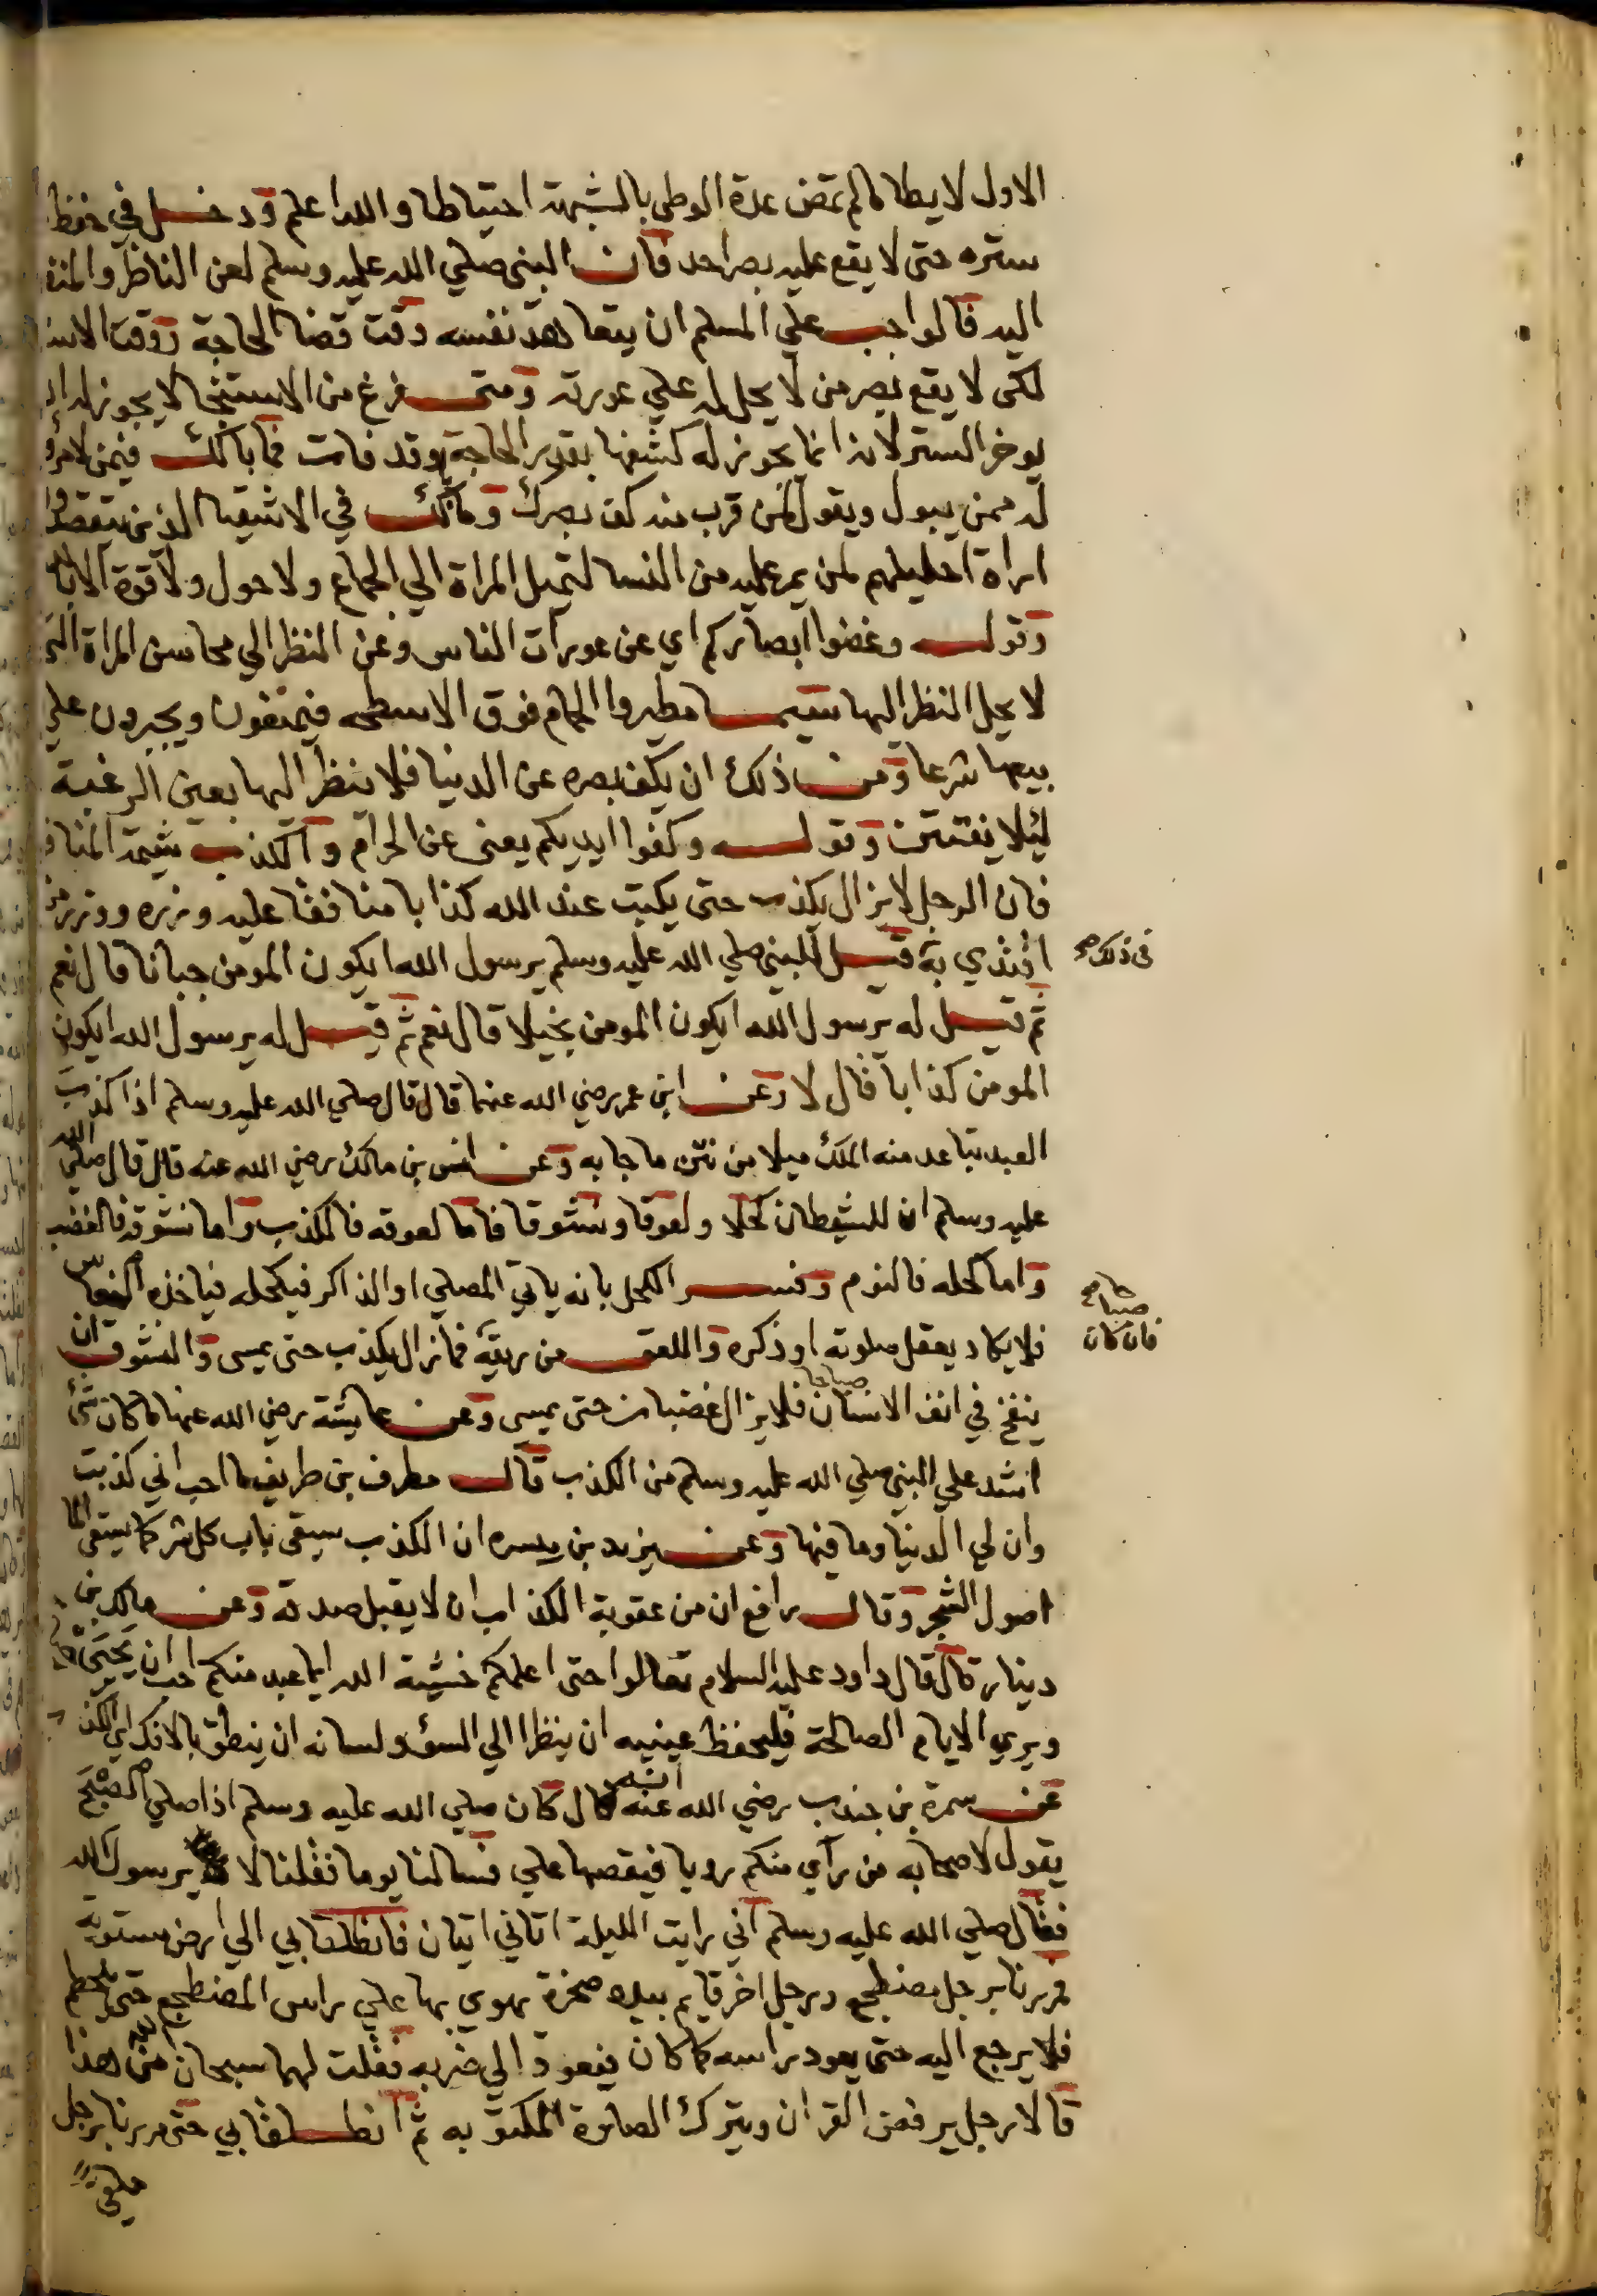 الاول لا يطا مالم تمض عدة الوطي بالشبهة احتياطا والله اعلم ودخل في حفظ
ستره حتى لا يقع عليه بصر احد فان النبي صلي الله عليه وسلم لعن الناظر والمنظ
اليه فالواجب علي المسلم ان يتعاهد نفسه وقت قضا الحاجة ووقت الاست
لكى لا يقع بصر من لا يحل له علي عورته ومتى فرغ من الاستنجا لا يجوز له ان
يوخر الستر لانه انما يجوز له كشفها بقدر الحاجة وقد فاتت فما بالك فيمن لا مرؤ
له ممن يبول ويقول لمن قرب منه كف بصرك وما بالك في الاشقيا الذين يتقصدوا
اراة احليلهم لمن يمر عليه من النسا لتميل المراة الي الجماع ولا حول ولا قوة الا بالله
وقوله وغضوا ابصاركم اي عن عورات الناس وعن النظر الي محاسن المراة التي
لا يحل النظر اليها سيما مطيروا الحمام فوق الاسطحه فيمنعون ويجبرون علي
بيعها شرعا ومن ذلك ان يكف بصره عن الدنيا فلا ينظر اليها بعين الرغبة
ليلا يفتتن وقوله وكفوا ايديكم يعنى عن الحرام والكذب شيمة المناف
فان الرجل لا يزال يكذب حتى يكتب عند الله كذابا منافقا عليه وزره ووزر من
اقتدي به قيل للنبي صلي الله عليه وسلم يرسول الله ايكون المومن جبانا قال نعم
في ذلك صح
ثم قيل له يرسول الله ايكون المومن بخيلا قال نعم ثم قيل له يرسول الله ايكون
المومن كذابا قال لا وعن ابن عمر رضي الله عنهما قال قال صلي الله عليه وسلم اذا كذب
العبد تباعد منه الملك ميلا من نتن ما جا به وعن انس بن مالك رضي الله عنه قال قال صلي الله
عليه وسلم ان للشيطان كحلا ولعوقا ونشوقا فاما لعوقه فالكذب واما نشوقه فالغضب
واما كحله فالنوم وفسر الكحل بانه ياتي المصلي او الذاكر فيكحله فياخذه النعاس
فلا يكاد يعقل صلوته او ذكره واللعق من ريقه فما زال يكذب حتى يمسي والنشوق ان
صباحا صح
فان كان
ينفخ في انف الانسان صباحا فلا يزال غضبان حتى يمسي وعن عايشة رضي الله عنها ما كان شئ
اشد علي النبي صلي الله عليه وسلم من الكذب قال مطرف بن طريف ما احب اني كذبت
وان لي الدنيا وما فيها وعن يزيد بن ميسره ان الكذب سيقى باب كل شر كما يسقى الما
اصول الشجر وقال رافع ان من عقوبة الكذاب ان لا يقبل صدقه وعن مالك بن
دينار قال قال داود عليه السلام تعالوا حتى اعلمكم خشية الله ايما عبد منكم احب ان يحيى
ويري الايام الصالحة فليحفظ عينيه ان ينظرا الي السؤ ولسانه ان ينطق بالافك اي الكذ
عن سمرة بن جندب رضي الله عنه انه قال كان صلي الله عليه وسلم اذا صلي الصبح
يقول لاصحابه من رآي منكم رويا فيقصها علي فسالنا يوما فقلنا لا يرسول الله
فقال صلي الله عليه وسلم اني رايت الليلة اتاني اتيان فانطلقا بي الي ارض مستوية
فمررنا برجل مضطجع ورجل اخر قايم بيده صخرة يهوي بها علي راس المضطجع حتى
فلا يرجع اليه حتى يعود راسه كما كان فيعود الي ضربه فقلت لهما سبحان الله من هذا
قالا رجل يرفض القران ويترك الصلوة المكتوبه ثم انطلقا بي حتى مررنا برجل
ملقى